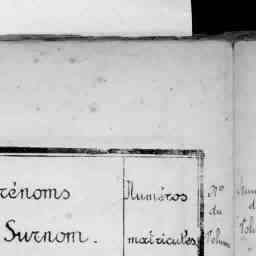 rénoms
Surnom.
Numéros
matricules
N°
du
Volum